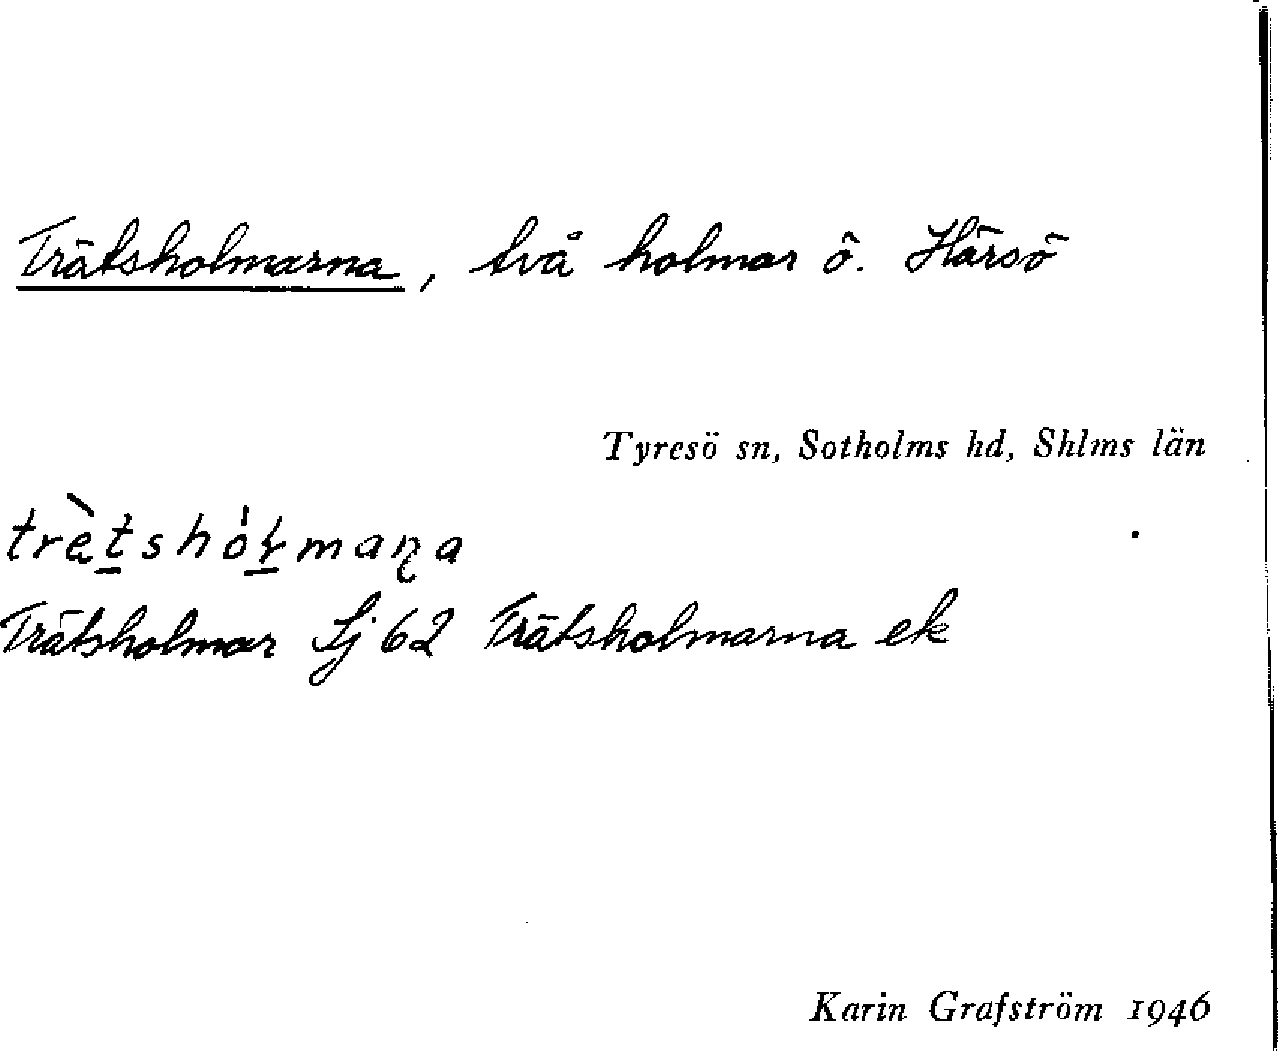 Trätsholmarna, två holmar ö. Härsö
Tyresö sn, Sotholms hd, Shlms län
trètshólmaṇa
Trätsholmar Sj 62 Trätsholmarna ek
Karin Grafström 1946